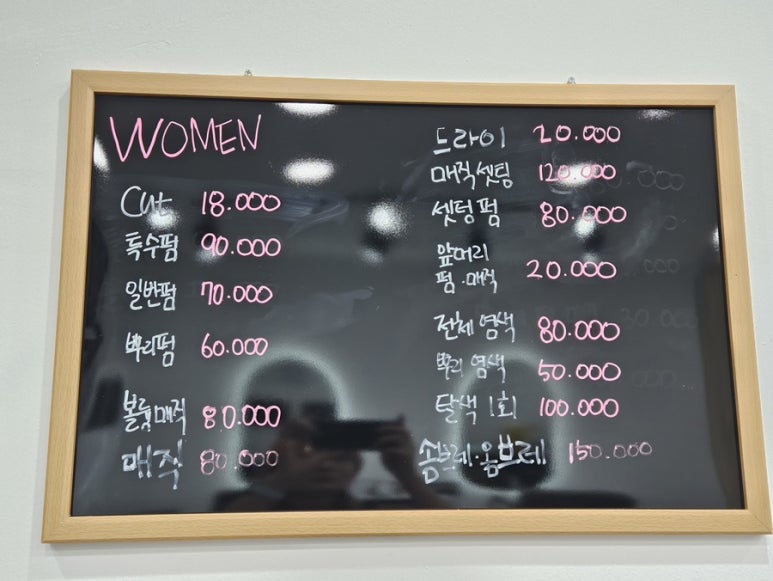 WOMEN
Cut 18.000
특수펌 90.000
일반펌 70.000
뿌리펌 60.000
볼륨매직 80.000
매직 80.000
드라이 20.000
매직셋팅 120.000
셋팅펌 80.000
앞머리
펌.매직 20.000
전체염색 80.000
뿌리염색 50.000
탈색 1회 100.000
솜브레.옴브레 150.000